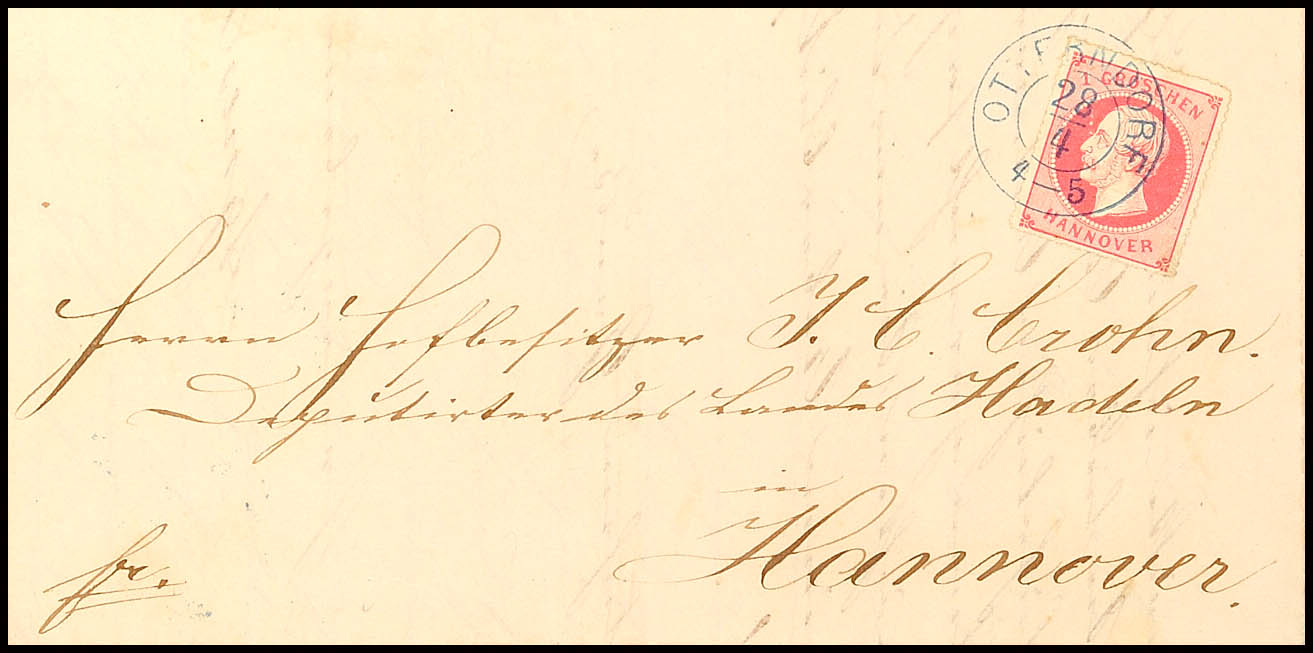 OTTERNDORF
28
4
4–5
1 GROSCHEN
HANNOVER
Herrn Hofbesitzer J. C. Crohn.
Deputirter des Landes Hadeln
in
Hannover.
fr.